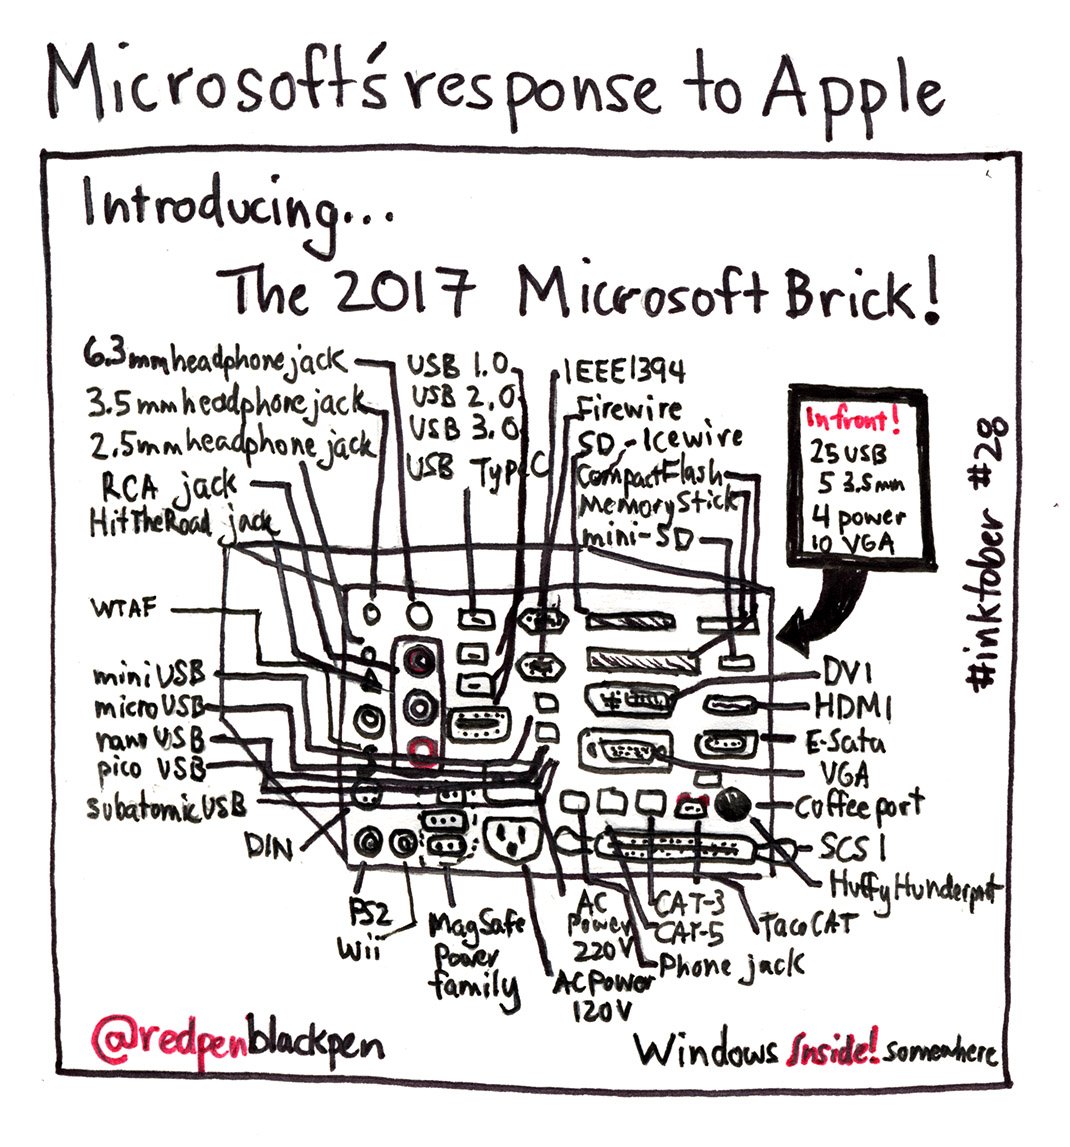 Microsoft's response to Apple
Introducing...
The 2017 Microsoft Brick!
6.3mm headphone jack
3.5mm headphone jack
2.5mm headphone jack
RCA jack
HitTheRoad jack
WTAF
mini USB
micro USB
nano USB
pico USB
subatomic USB
DIN
PS2
Wii
MagSafe
Power
family
USB 1.0
USB 2.0
USB 3.0
USB Type-C
IEEE1394
Firewire
SD - Icewire
CompactFlash
Memory Stick
mini-SD
In front!
25 USB
5 3.5mm
4 power
10 VGA
DVI
HDMI
E-Sata
VGA
Coffee port
SCSI
HuffyHunderport
TacoCAT
CAT-3
CAT-5
Phone jack
AC
Power
220V
AC Power
120V
#inktober #28
@redpenblackpen
Windows Inside! somewhere